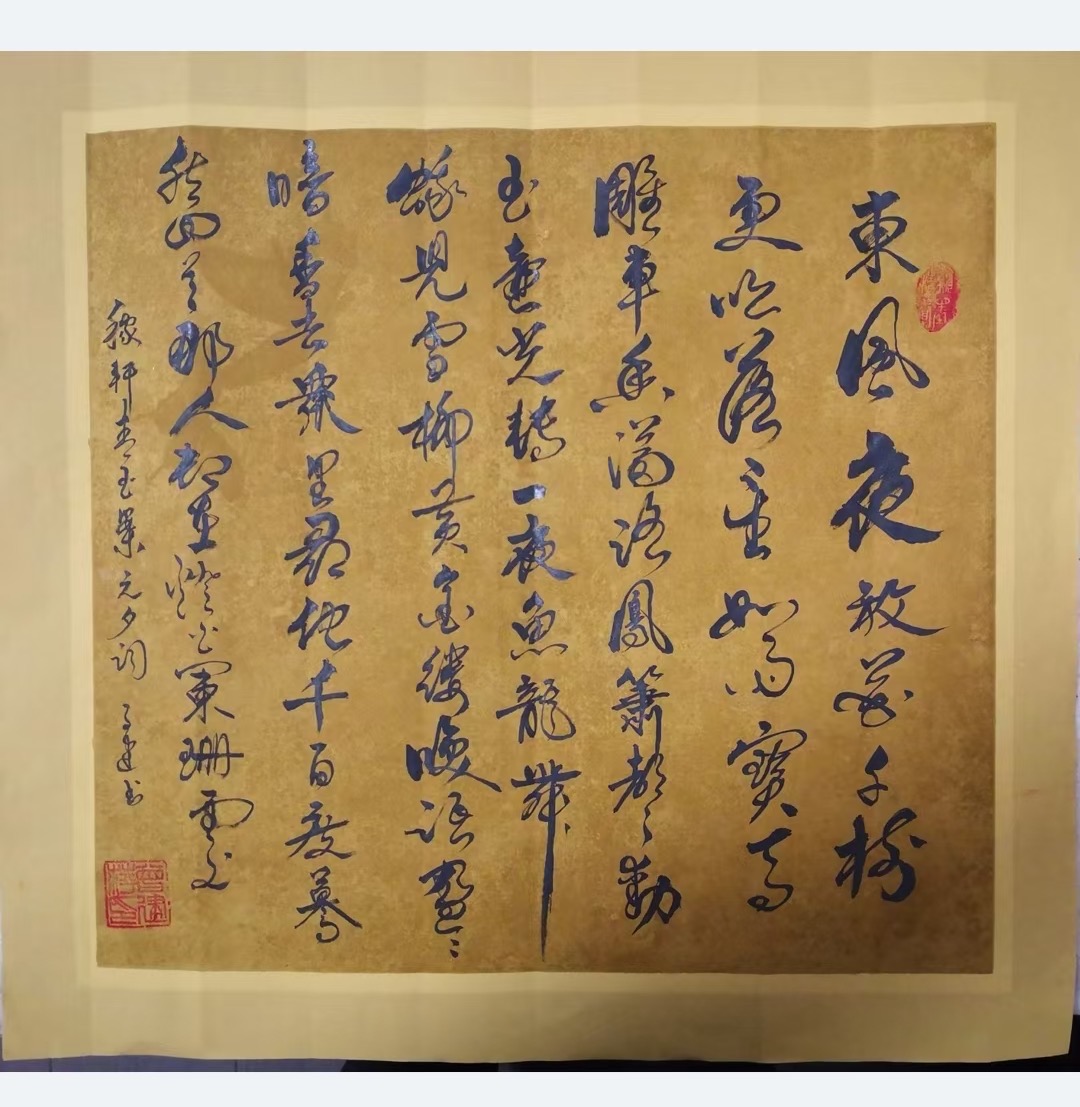 東風夜放花千樹
更吹落星如雨寶馬
雕車香滿路鳳簫聲動
玉壺光轉一夜魚龍舞
蛾兒雪柳黃金縷咲語盈〻
暗香去衆里尋他千百度驀
然回首那人却在燈火闌珊處
稼軒青玉案元夕詞 建書